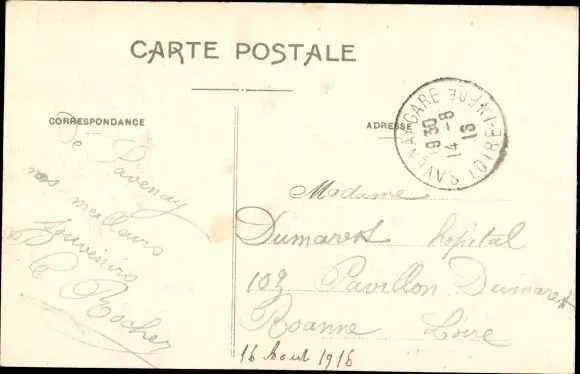 CARTE POSTALE
CORRESPONDANCE
De Savenay
nos meilleurs
souvenirs
Rocher
ADRESSE
SAVENAY-GARE LOIRE-INFRE
9 30
14 - 8
16
Madame
Dumarest hopital
102 Pavillon Dumarest
Roanne Loire
16 Aout 1916